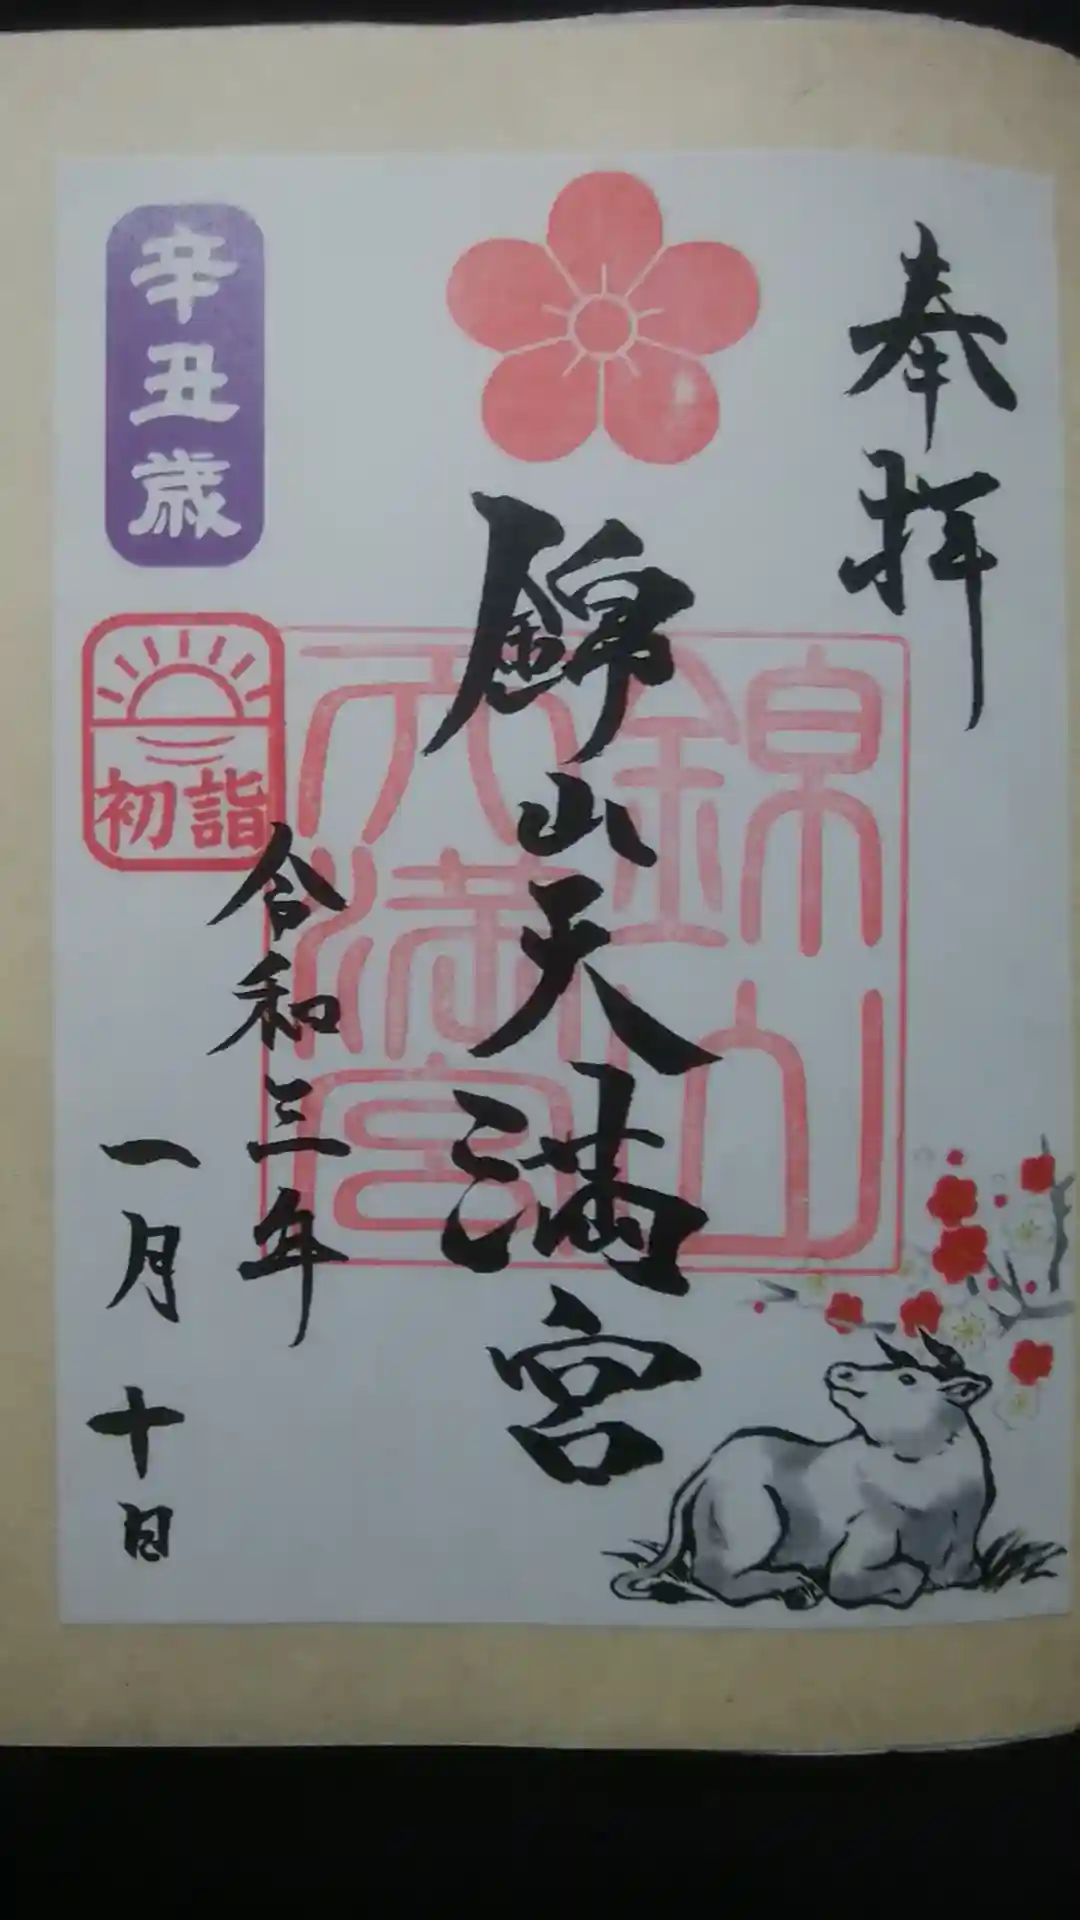 奉拝
錦山天満宮
錦山
天満宮
令和三年
一月十日
辛丑歳
初詣